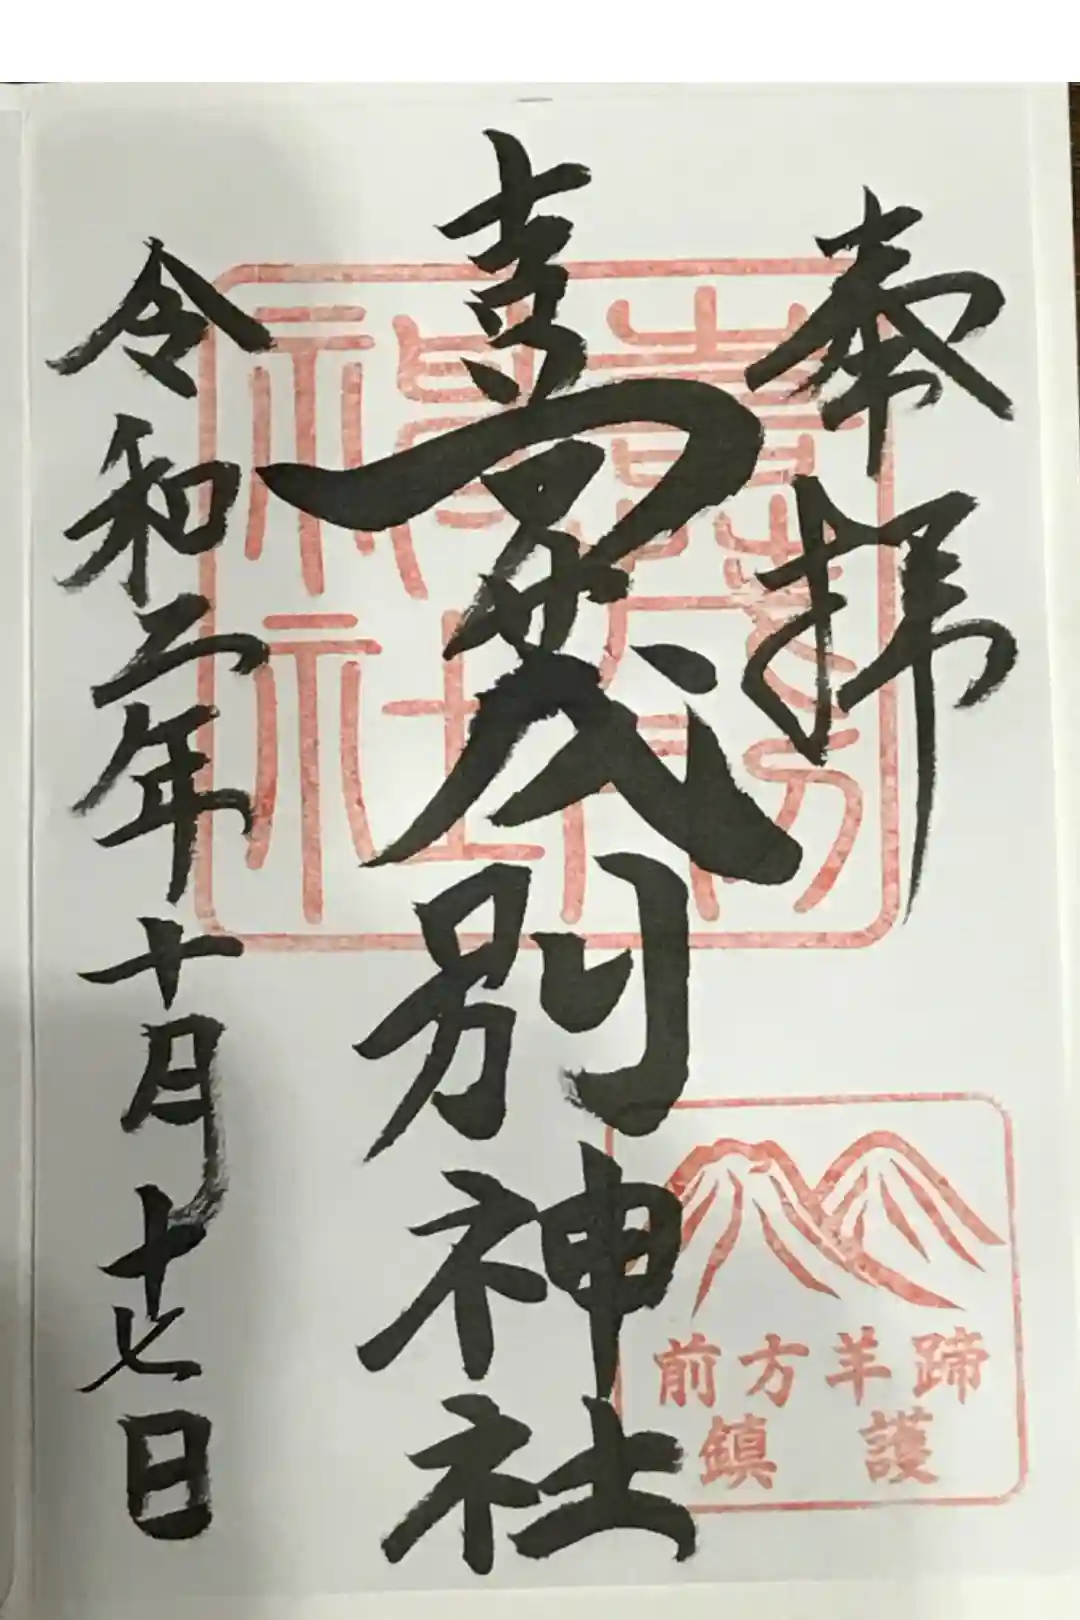 奉拝
喜茂別神社
令和二年十月十七日
喜茂別
神社
前方羊蹄
鎮護